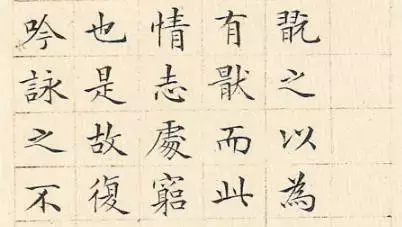 翫之以為
有猒而此
情志處窮
也是故復
吟詠之不